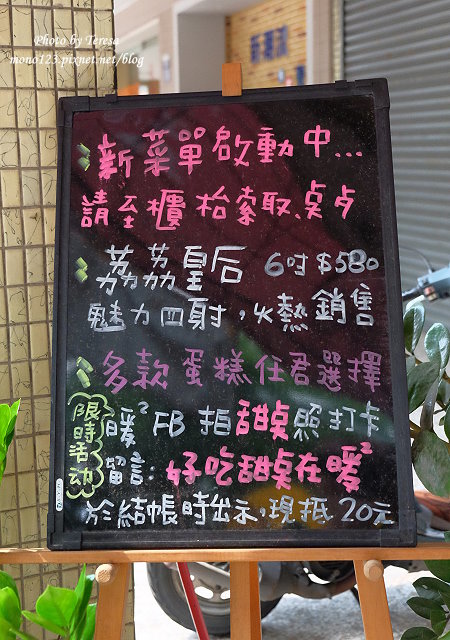 Photo by Teresa
mono123.pixnet.net/blog
新菜單啟動中...
請至櫃枱索取、桌歺
荔荔皇后 6吋$580
魅力四射,火熱銷售
多款蛋糕任君選擇
限時活动
暖² FB 拍甜桌照打卡
留言:好吃甜桌在暖²
於結帳時出示,現抵20元